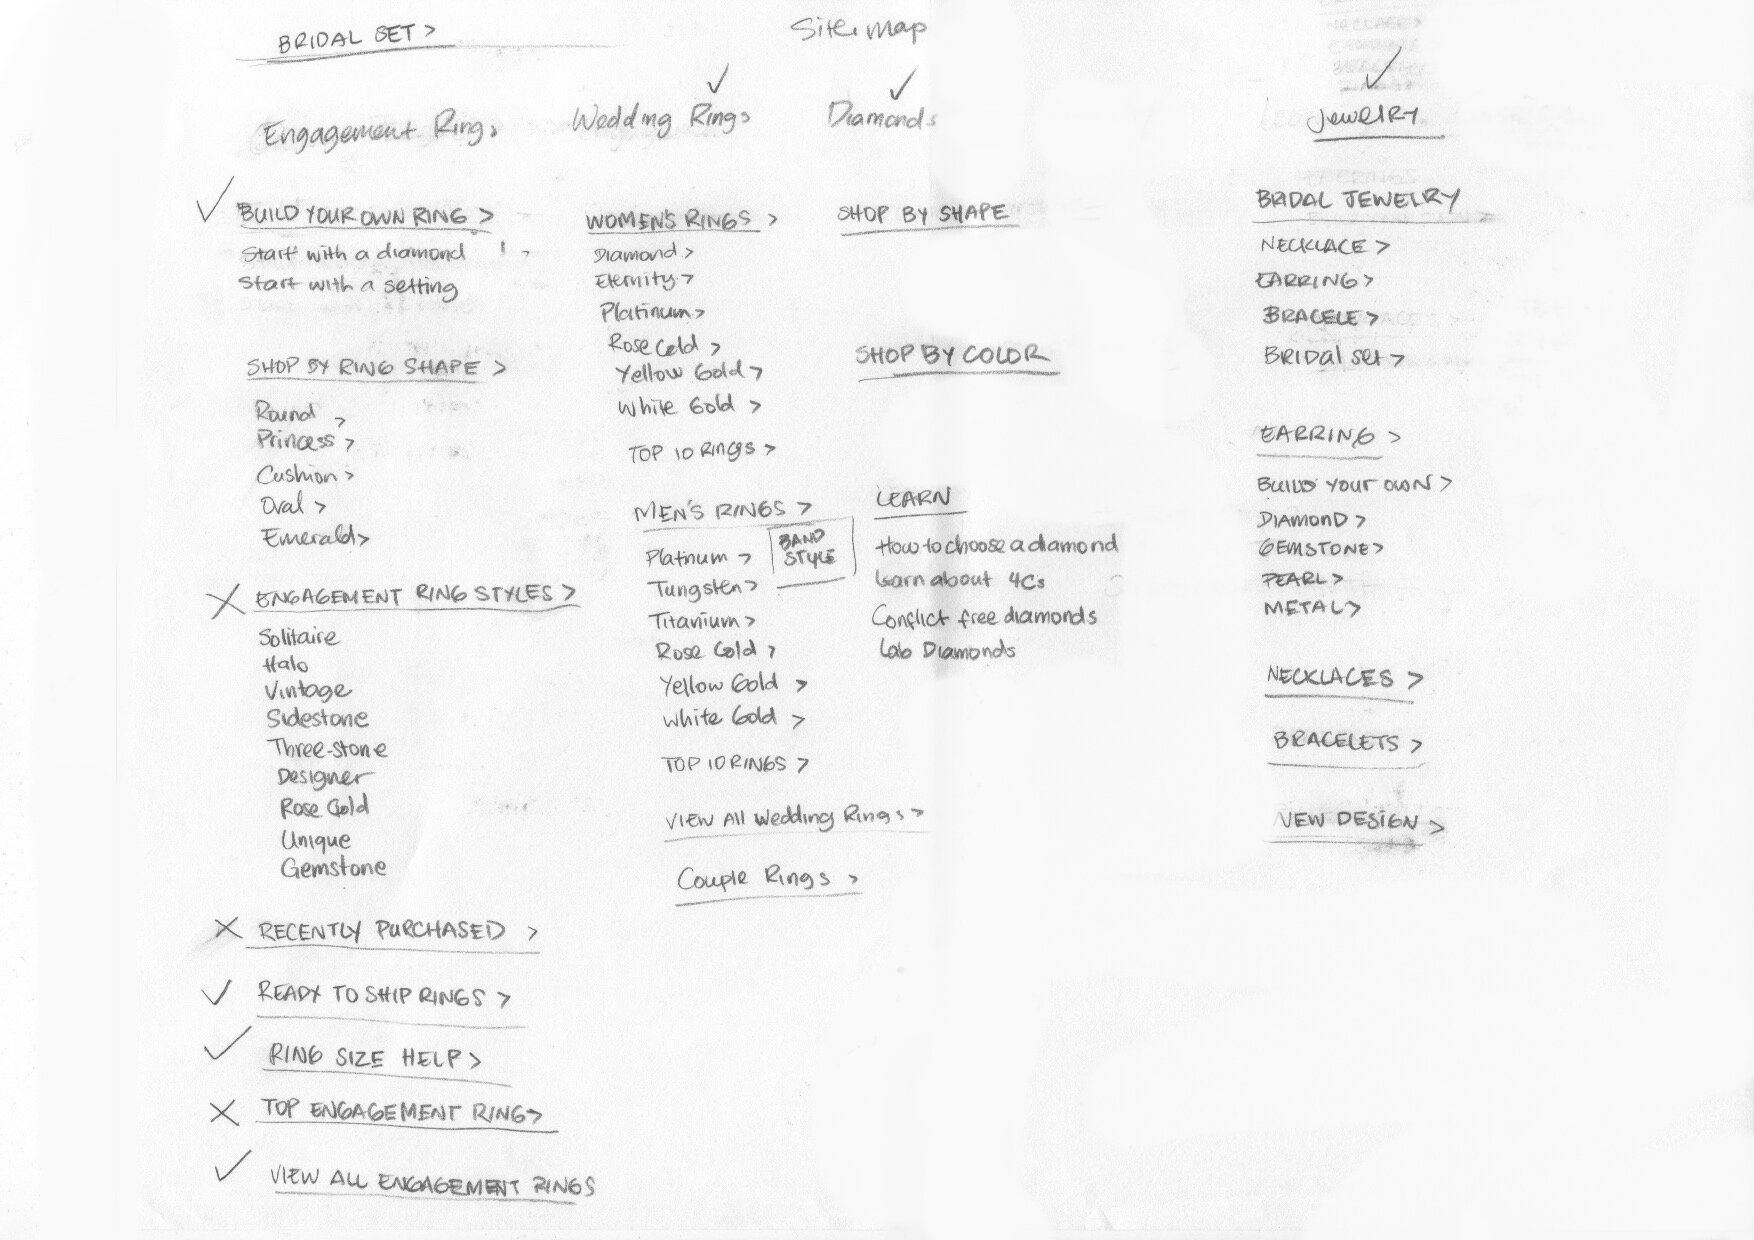 BRIDAL SET >
Site map
Engagement Rings
BUILD YOUR OWN RING >
Start with a diamond
Start with a setting
SHOP BY RING SHAPE >
Round >
Princess >
Cushion >
Oval >
Emerald >
ENGAGEMENT RING STYLES >
Solitaire
Halo
Vintage
Sidestone
Three-stone
Designer
Rose Gold
Unique
Gemstone
RECENTLY PURCHASED >
READY TO SHIP RINGS >
RING SIZE HELP >
TOP ENGAGEMENT RING >
VIEW ALL ENGAGEMENT RINGS
Wedding Rings
WOMEN'S RINGS >
Diamond >
Eternity >
Platinum >
Rose Gold >
Yellow Gold >
White Gold >
TOP 10 RINGS >
MEN'S RINGS >
BAND
STYLE
Platinum >
Tungsten >
Titanium >
Rose Gold >
Yellow Gold >
White Gold >
TOP 10 RINGS >
VIEW All Wedding Rings >
Couple Rings >
Diamonds
SHOP BY SHAPE
SHOP BY COLOR
LEARN
How to choose a diamond
Learn about 4Cs
Conflict free diamonds
Lab Diamonds
JewelRY
BRIDAL JEWELRY
NECKLACE >
EARRING >
BRACELE >
BRIDal set >
EARRING >
BUILD YOUR OWN >
DIAMOND >
GEMSTONE >
PEARL >
METAL >
NECKLACES >
BRACELETS >
VEW DESIGN >